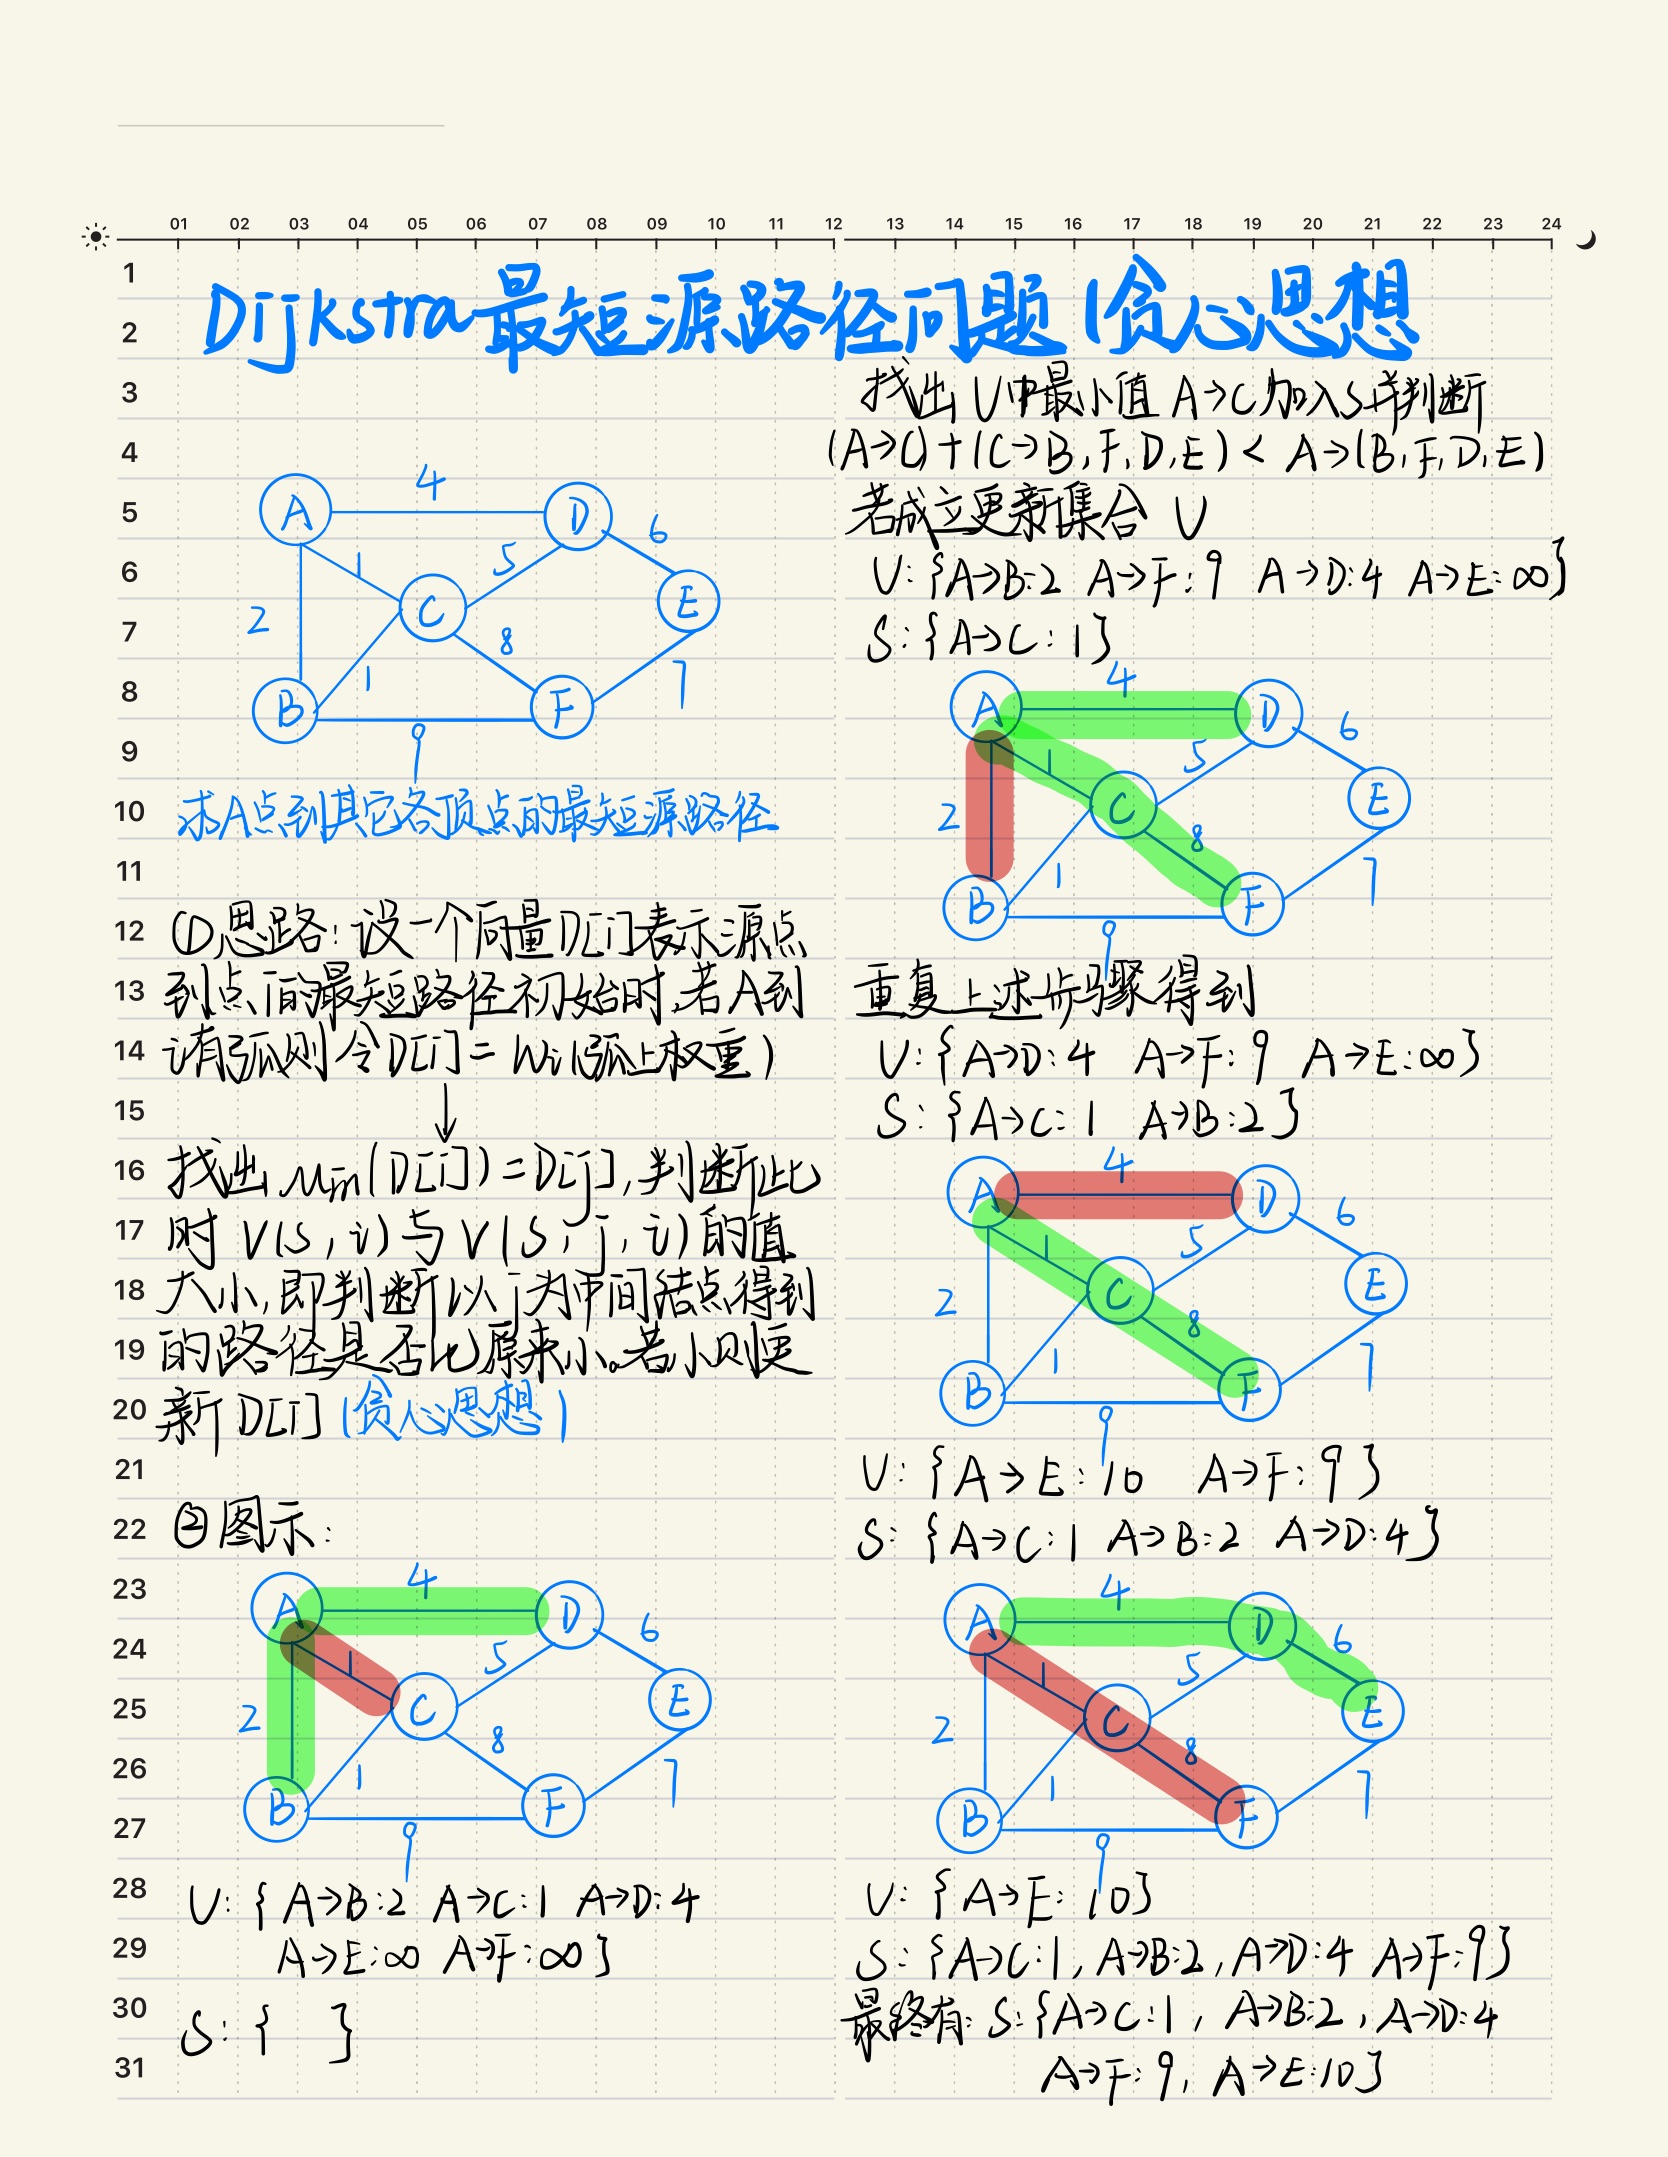 01 02 03 04 05 06 07 08 09 10 11 12 13 14 15 16 17 18 19 20 21 22 23 24
Dijkstra最短源路径问题(贪心思想
1
2
3
4
5
6
7
8
9
10
11
12
13
14
15
16
17
18
19
20
21
22
23
24
25
26
27
28
29
30
31
A 4 D
1 5 6
2 C E
8
1 7
B F
9
求A点到其它各顶点的最短源路径
①思路:设一个向量D[i]表示源点
到点i的最短路径初始时,若A到
i有弧则令D[i]=Wi(弧上权重)
↓
找出Min(D[i])=D[j],判断此
时V(S,i)与V(S,j,i)的值
大小,即判断以j为中间结点得到
的路径是否比原来小。若小则更
新D[i](贪心思想)
②图示:
A 4 D
1 5 6
2 C E
8
1 7
B F
9
U:{A→B:2 A→C:1 A→D:4
A→E:∞ A→F:∞}
S:{ }
找出U中最小值A→C加入S并判断
(A→C)+(C→B,F,D,E)< A→(B,F,D,E)
若成立更新集合U
U:{A→B:2 A→F:9 A→D:4 A→E:∞}
S:{A→C:1}
A 4 D
1 5 6
2 C E
8
1 7
B F
9
重复上述步骤得到
U:{A→D:4 A→F:9 A→E:∞}
S:{A→C:1 A→B:2}
A 4 D
1 5 6
2 C E
8
1 7
B F
9
U:{A→E:10 A→F:9}
S:{A→C:1 A→B:2 A→D:4}
A 4 D
1 5 6
2 C E
8
1 7
B F
9
U:{A→E:10}
S:{A→C:1,A→B:2,A→D:4 A→F:9}
最终有:S:{A→C:1,A→B:2,A→D:4
A→F:9,A→E:10}